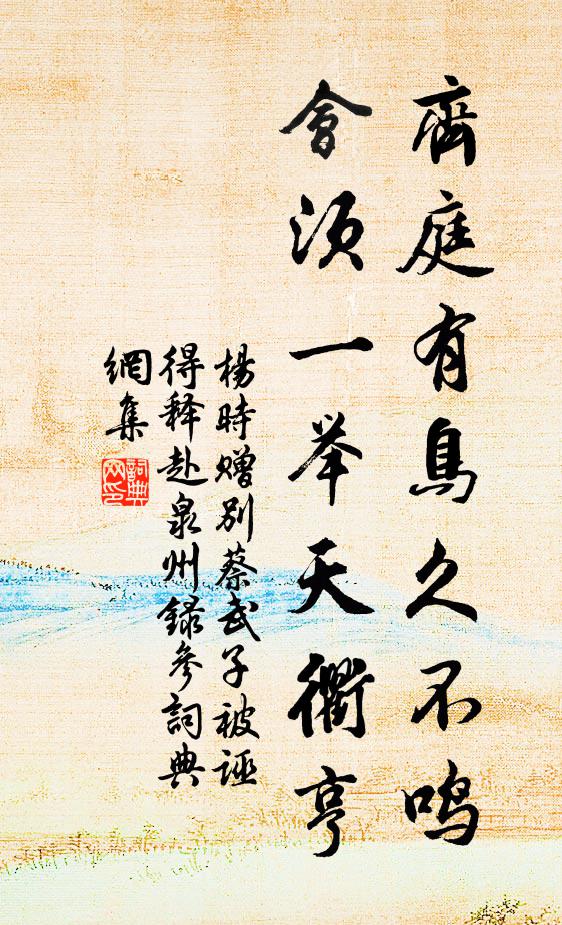 齊庭有鳥久不鸣
會須一举天衢亨
楊時赠别蔡武子被誣
得释赴泉州録參詞典
網集
詞典網印